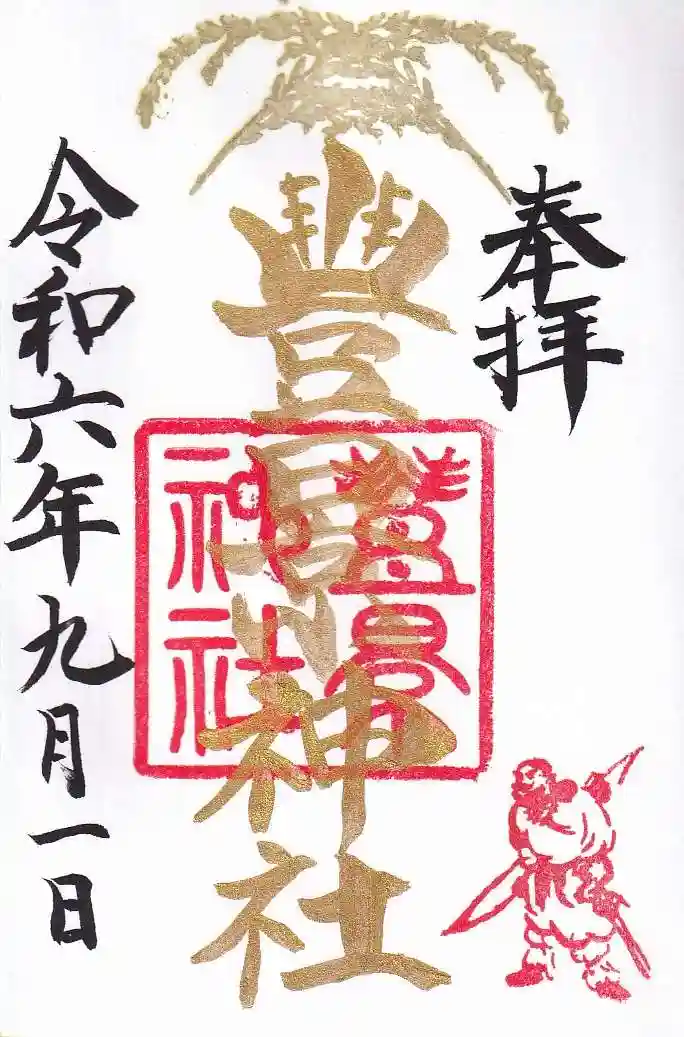 奉拝
豐景神社
豐景
神社
令和六年九月一日